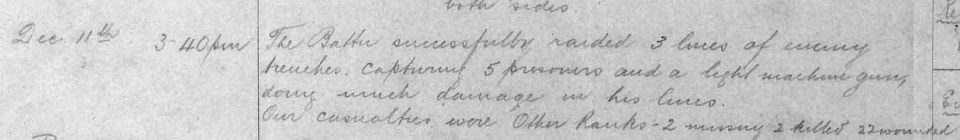 both sides.
Dec 11th 3-40pm The Battn successfully raided 3 lines of enemy
trenches. capturing 5 prisoners and a light machine gun,
doing much damage in his lines.
Our casualties were Other Ranks - 2 missing 2 killed 22 wounded